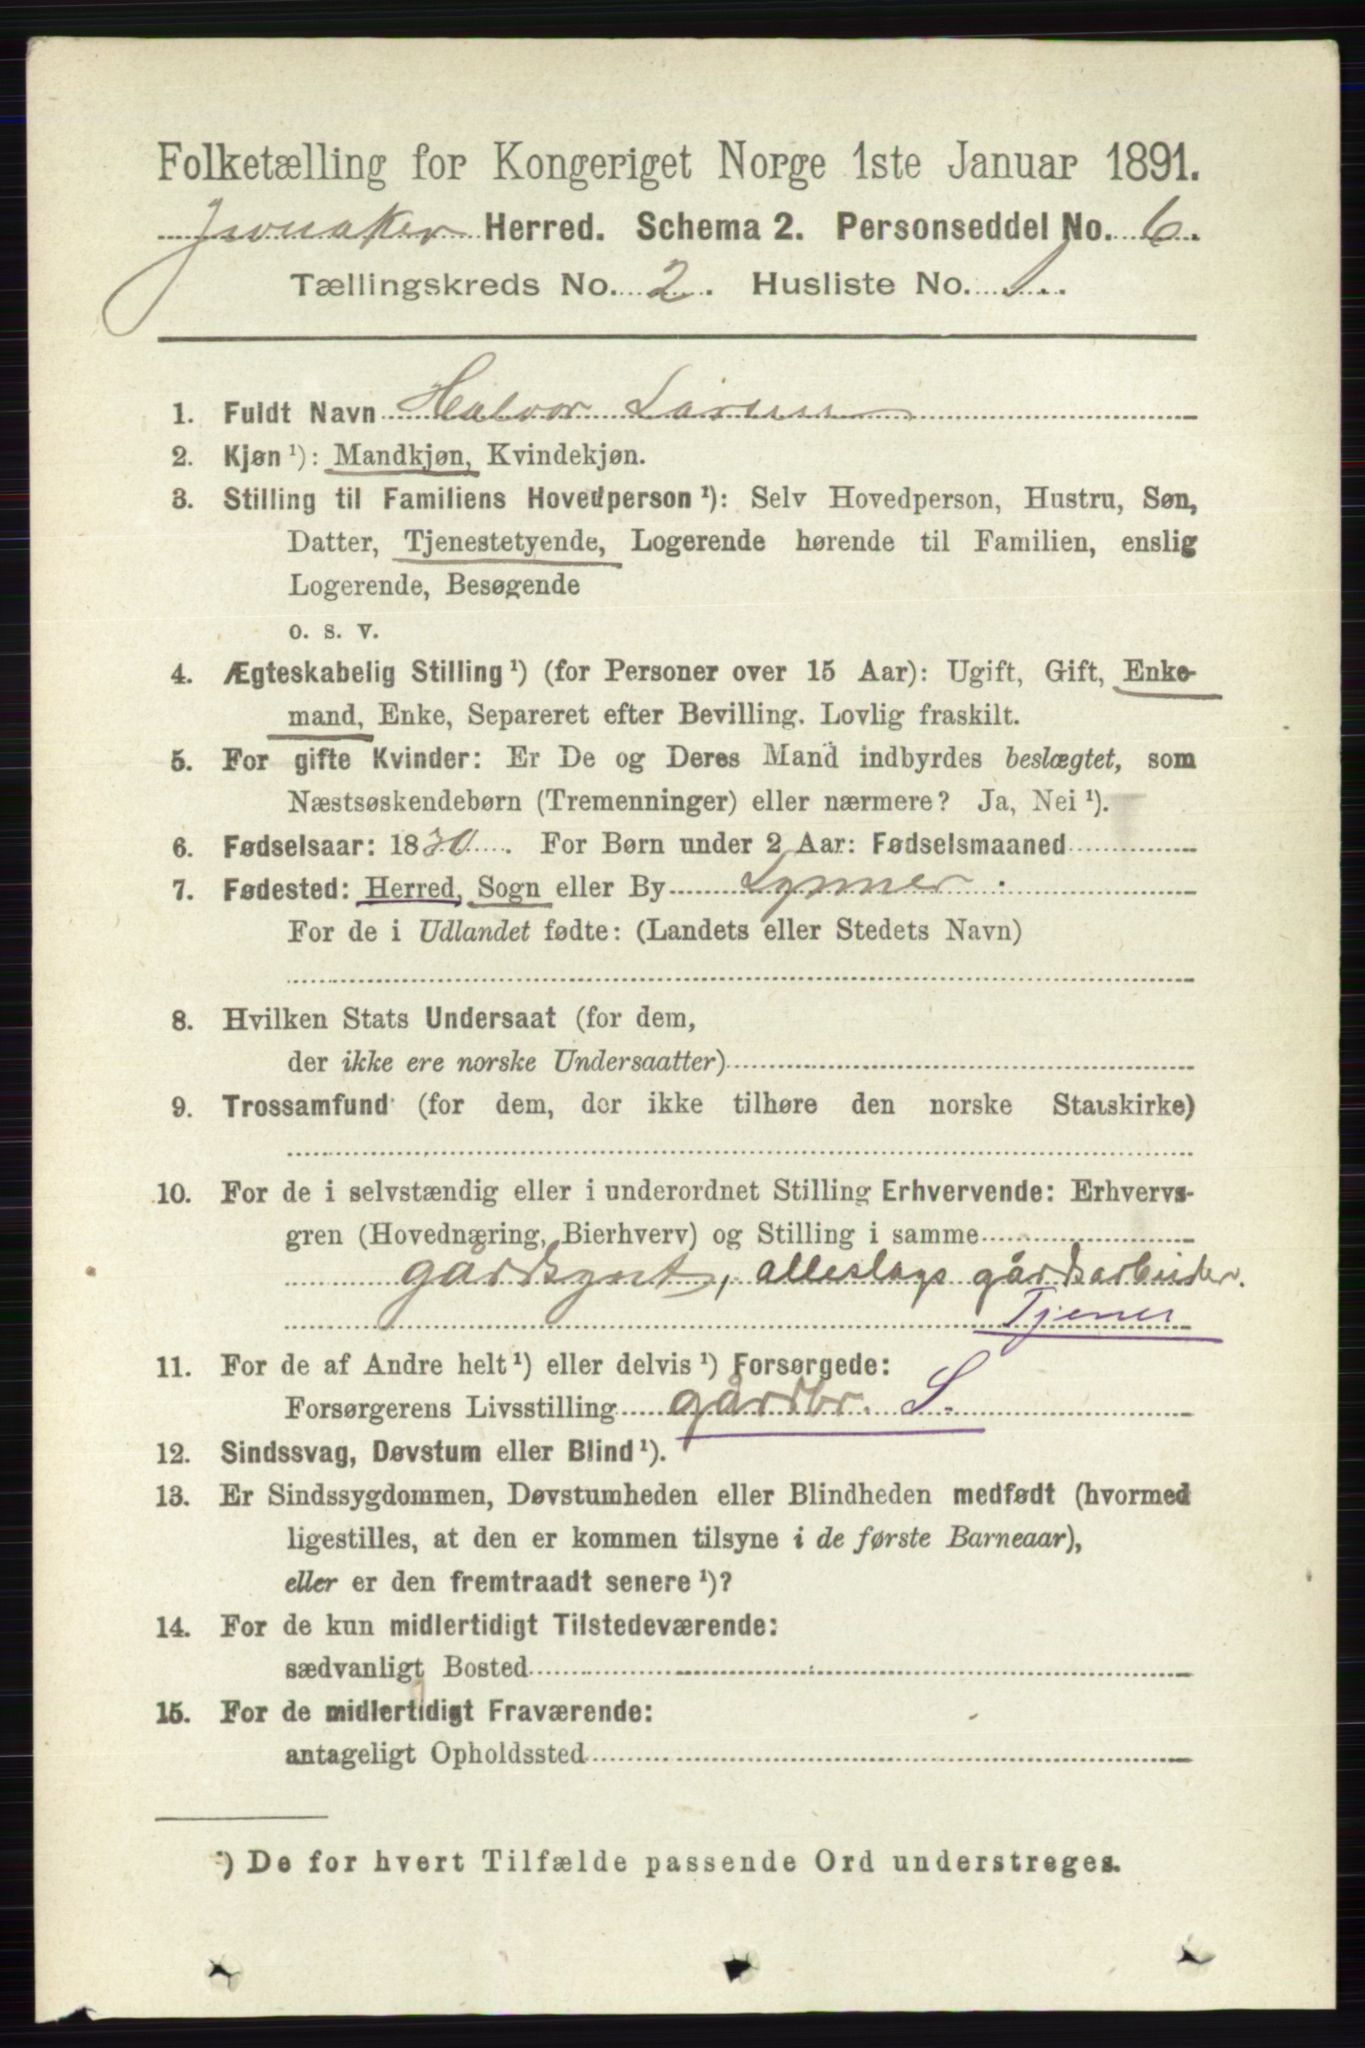 Folketælling for Kongeriget Norge 1ste Januar 1891.
Jevnaker Herred. Schema 2. Personseddel No. 6.
Tællingskreds No. 2. Husliste No. 1.
1. Fuldt Navn Halvor Larsen
2. Kjøn ¹): Mandkjøn, Kvindekjøn.
3. Stilling til Familiens Hovedperson ¹): Selv Hovedperson, Hustru, Søn,
Datter, Tjenestetyende, Logerende hørende til Familien, enslig
Logerende, Besøgende
o. s. v.
4. Ægteskabelig Stilling ¹) (for Personer over 15 Aar): Ugift, Gift, Enke-
mand, Enke, Separeret efter Bevilling. Lovlig fraskilt.
5. For gifte Kvinder: Er De og Deres Mand indbyrdes beslægtet, som
Næstsøskendebørn (Tremenninger) eller nærmere? Ja, Nei ¹).
6. Fødselsaar: 1830. For Børn under 2 Aar: Fødselsmaaned
7. Fødested: Herred, Sogn eller By Lynner
For de i Udlandet fødte: (Landets eller Stedets Navn)
8. Hvilken Stats Undersaat (for dem,
der ikke ere norske Undersaatter)
9. Trossamfund (for dem, der ikke tilhøre den norske Statskirke)
10. For de i selvstændig eller i underordnet Stilling Erhvervende: Erhvervs-
gren (Hovednæring, Bierhverv) og Stilling i samme
gårdsgut, alleslags gårdsarbeider.
Tjener
11. For de af Andre helt ¹) eller delvis ¹) Forsørgede:
Forsørgerens Livsstilling gårdbr. S.
12. Sindssvag, Døvstum eller Blind ¹).
13. Er Sindssygdommen, Døvstumheden eller Blindheden medfødt (hvormed
ligestilles, at den er kommen tilsyne i de første Barneaar),
eller er den fremtraadt senere ¹)?
14. For de kun midlertidigt Tilstedeværende:
sædvanligt Bosted
15. For de midlertidigt Fraværende:
antageligt Opholdssted
¹) De for hvert Tilfælde passende Ord understreges.